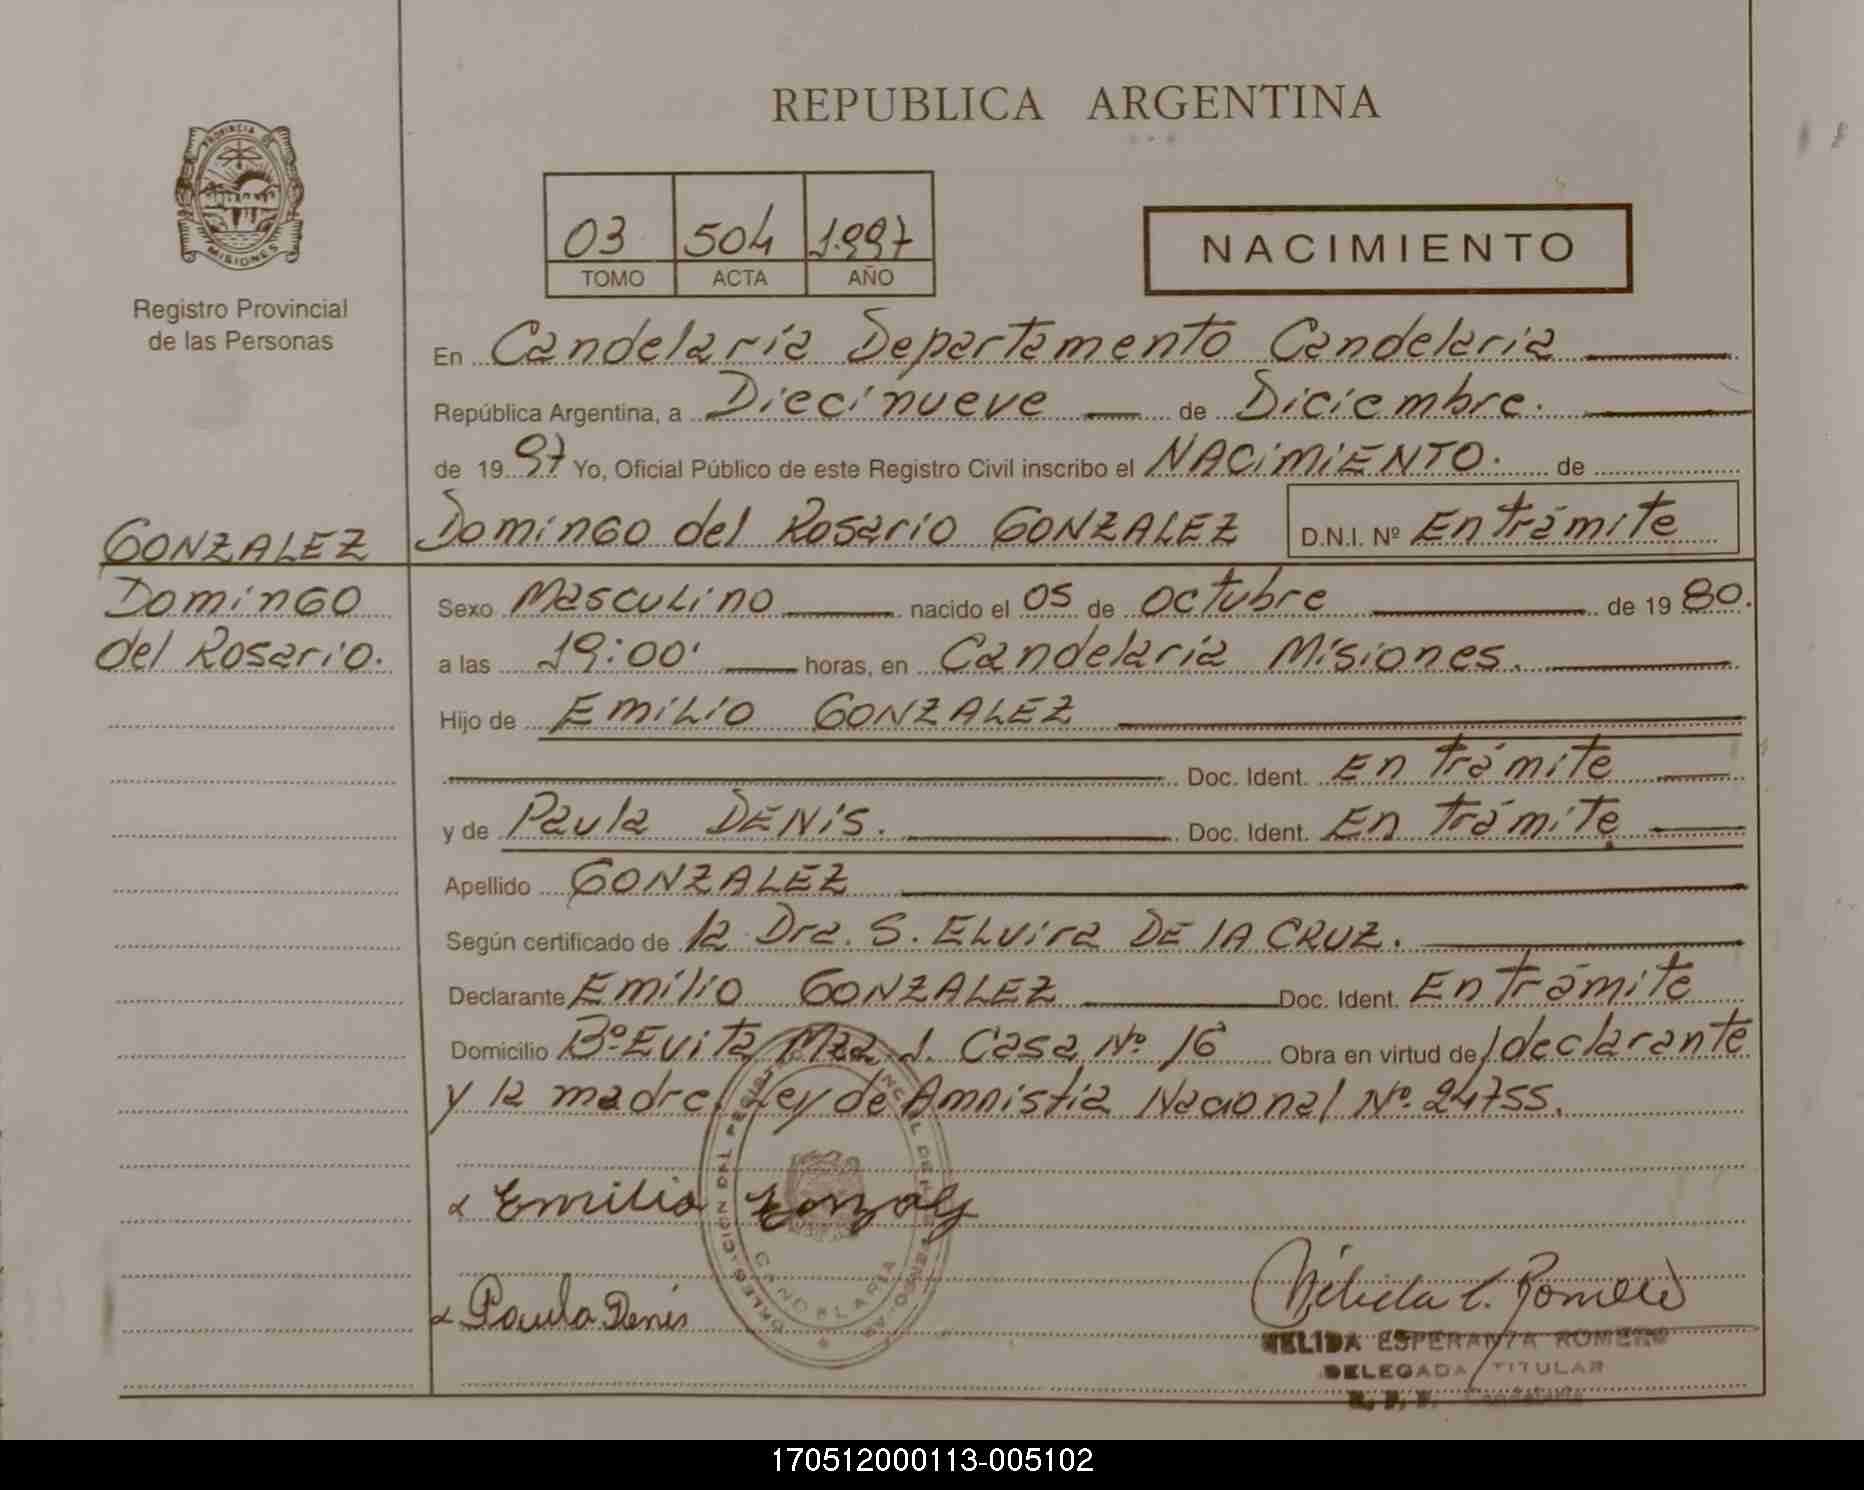 REPUBLICA ARGENTINA
PROVINCIA
MISIONES
Registro Provincial
de las Personas
03 504 1997
TOMO ACTA AÑO
NACIMIENTO
En Candelaria Departamento Candelaria
República Argentina, a Diecinueve de Diciembre.
de 1997 Yo, Oficial Público de este Registro Civil inscribo el NACIMIENTO. de
GONZALEZ
Domingo del Rosario GONZALEZ D.N.I. Nº En trámite
Domingo
del Rosario.
Sexo Masculino nacido el 05 de octubre de 1980.
a las 19:00' horas, en Candelaria Misiones.
Hijo de Emilio GONZALEZ
Doc. Ident. En trámite
y de Paula DENIS. Doc. Ident. En trámite
Apellido GONZALEZ
Según certificado de la Dra. S. Elvira DE LA CRUZ.
Declarante Emilio GONZALEZ Doc. Ident. En trámite
Domicilio Bº Evita Mza J. Casa Nº 16 Obra en virtud de/declarante
y la madre/Ley de Amnistia Nacional Nº 24755.
Emilio Gonzalez
Paula Denis
CANDELARIA
Nélida E. Romero
NELIDA ESPERANZA ROMERO
DELEGADA TITULAR
R. P. P. Candelaria
170512000113-005102